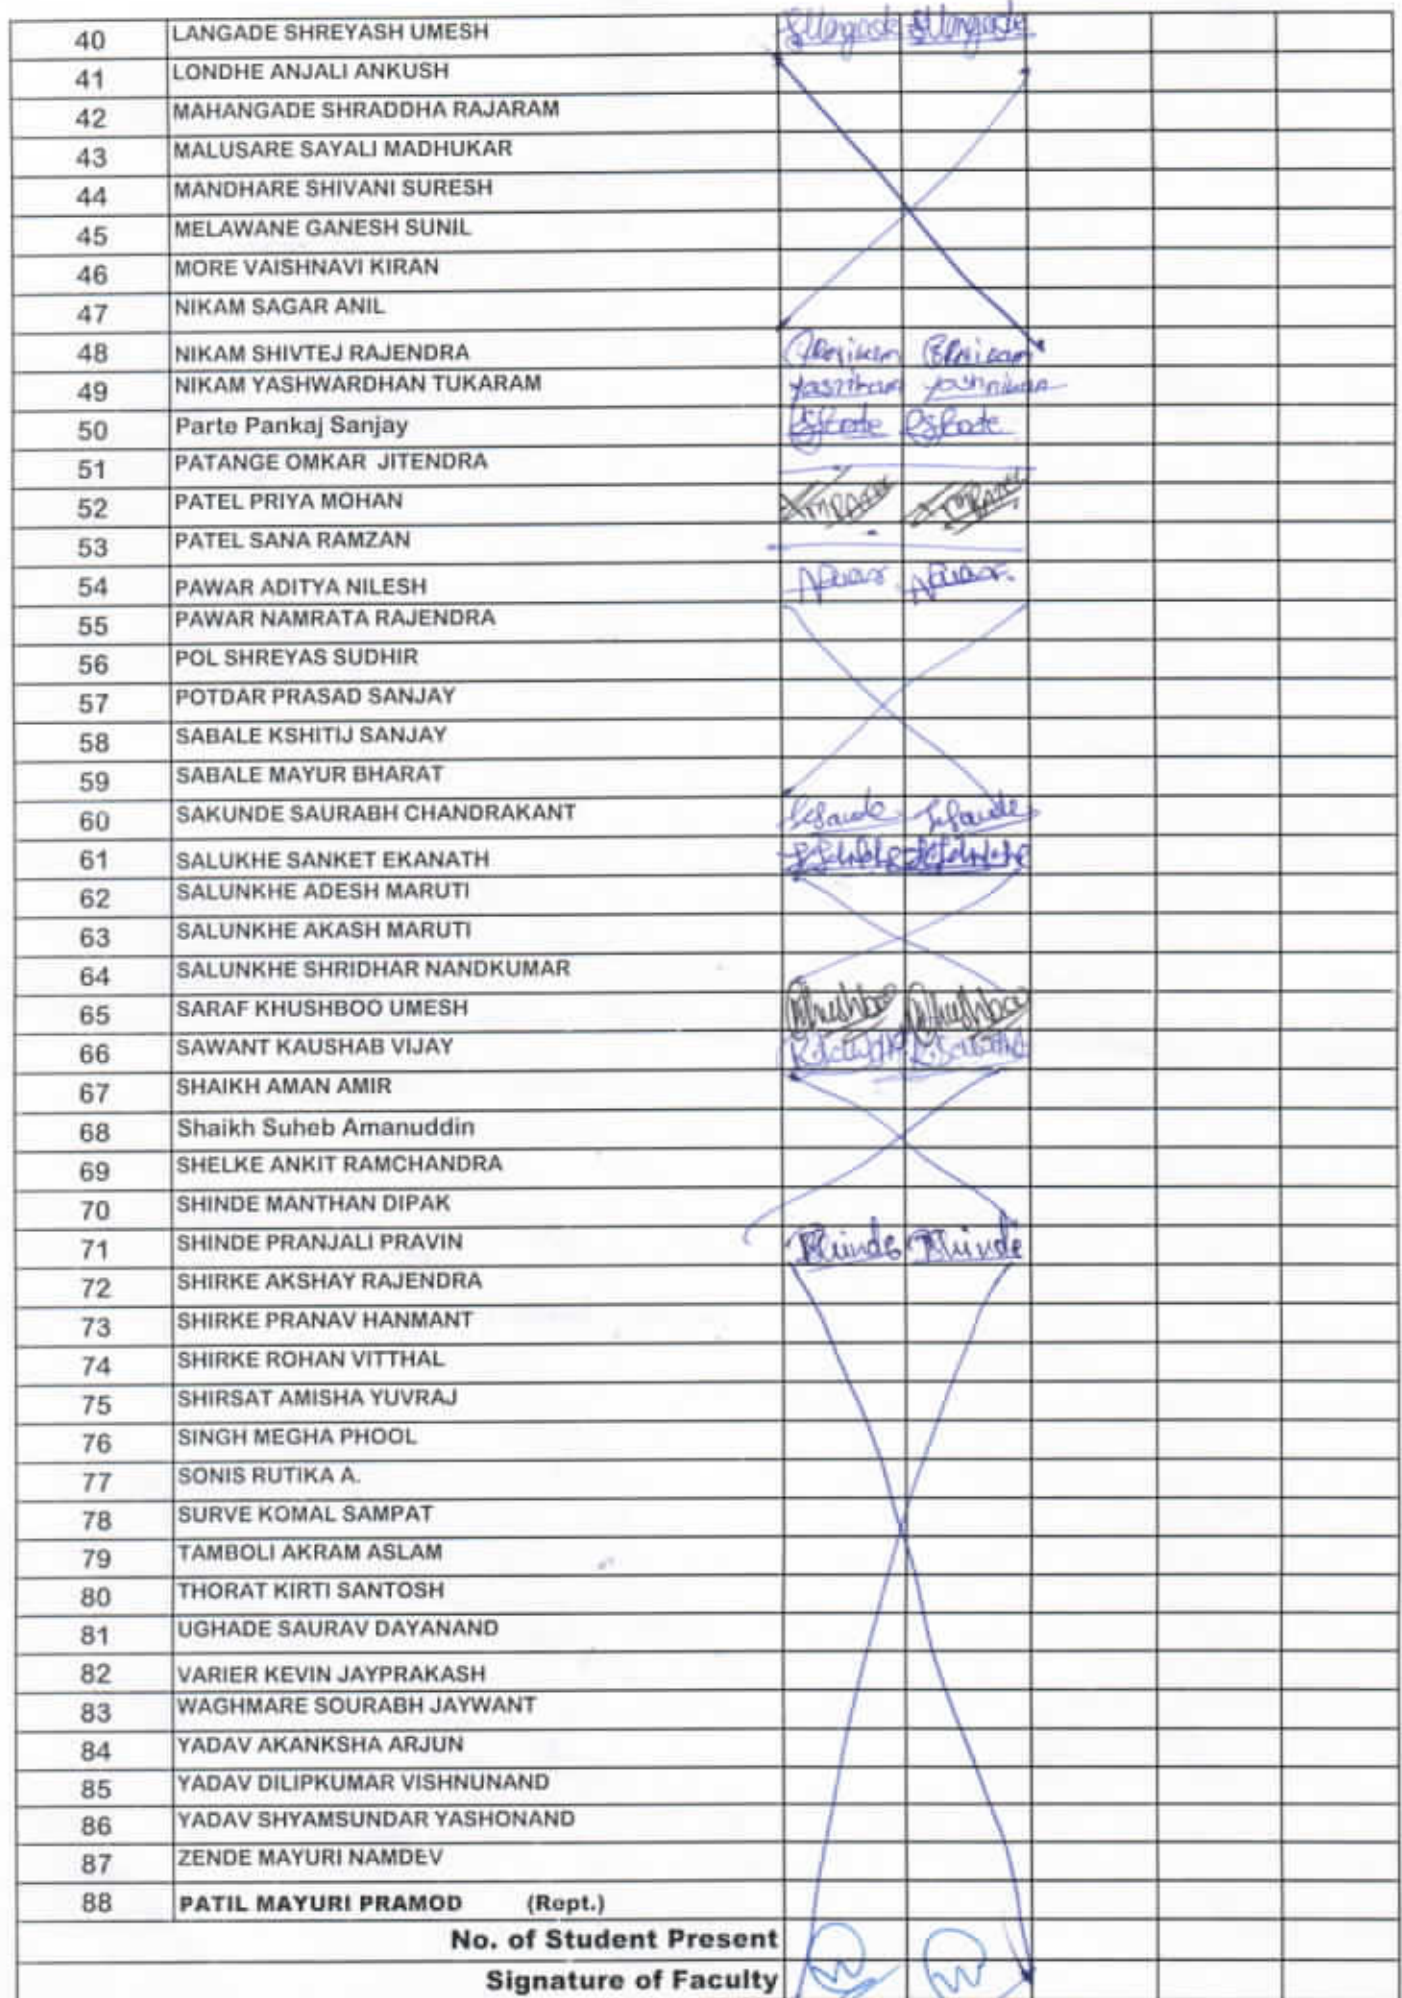 40 LANGADE SHREYASH UMESH SULangade SULangade
41 LONDHE ANJALI ANKUSH
42 MAHANGADE SHRADDHA RAJARAM
43 MALUSARE SAYALI MADHUKAR
44 MANDHARE SHIVANI SURESH
45 MELAWANE GANESH SUNIL
46 MORE VAISHNAVI KIRAN
47 NIKAM SAGAR ANIL
48 NIKAM SHIVTEJ RAJENDRA
49 NIKAM YASHWARDHAN TUKARAM
50 Parte Pankaj Sanjay
51 PATANGE OMKAR JITENDRA
52 PATEL PRIYA MOHAN
53 PATEL SANA RAMZAN
54 PAWAR ADITYA NILESH
55 PAWAR NAMRATA RAJENDRA
56 POL SHREYAS SUDHIR
57 POTDAR PRASAD SANJAY
58 SABALE KSHITIJ SANJAY
59 SABALE MAYUR BHARAT
60 SAKUNDE SAURABH CHANDRAKANT
61 SALUKHE SANKET EKANATH
62 SALUNKHE ADESH MARUTI
63 SALUNKHE AKASH MARUTI
64 SALUNKHE SHRIDHAR NANDKUMAR
65 SARAF KHUSHBOO UMESH Khushboo Khushboo
66 SAWANT KAUSHAB VIJAY
67 SHAIKH AMAN AMIR
68 Shaikh Suheb Amanuddin
69 SHELKE ANKIT RAMCHANDRA
70 SHINDE MANTHAN DIPAK
71 SHINDE PRANJALI PRAVIN PShinde PShinde
72 SHIRKE AKSHAY RAJENDRA
73 SHIRKE PRANAV HANMANT
74 SHIRKE ROHAN VITTHAL
75 SHIRSAT AMISHA YUVRAJ
76 SINGH MEGHA PHOOL
77 SONIS RUTIKA A.
78 SURVE KOMAL SAMPAT
79 TAMBOLI AKRAM ASLAM
80 THORAT KIRTI SANTOSH
81 UGHADE SAURAV DAYANAND
82 VARIER KEVIN JAYPRAKASH
83 WAGHMARE SOURABH JAYWANT
84 YADAV AKANKSHA ARJUN
85 YADAV DILIPKUMAR VISHNUNAND
86 YADAV SHYAMSUNDAR YASHONAND
87 ZENDE MAYURI NAMDEV
88 PATIL MAYURI PRAMOD (Rept.)
No. of Student Present
Signature of Faculty